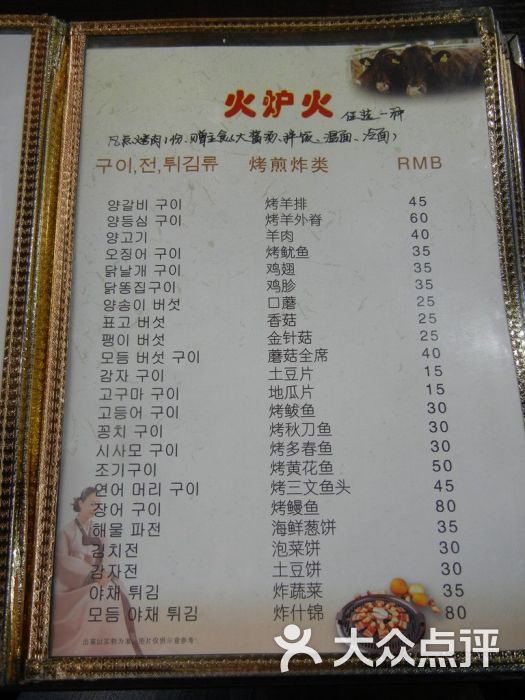 火炉火 任选一种
凡点烤肉1份、赠主食(大酱汤、拌饭、温面、冷面)
구이,전,튀김류 烤煎炸类 RMB
양갈비 구이 烤羊排 45
양등심 구이 烤羊外脊 60
양고기 羊肉 40
오징어 구이 烤鱿鱼 35
닭날개 구이 鸡翅 35
닭똥집구이 鸡胗 35
양송이 버섯 口蘑 25
표고 버섯 香菇 25
팽이 버섯 金针菇 25
모듬 버섯 구이 蘑菇全席 40
감자 구이 土豆片 15
고구마 구이 地瓜片 15
고등어 구이 烤鲅鱼 30
꽁치 구이 烤秋刀鱼 30
시사모 구이 烤多春鱼 30
조기구이 烤黄花鱼 50
연어 머리 구이 烤三文鱼头 45
장어 구이 烤鳗鱼 80
해물 파전 海鲜葱饼 35
김치전 泡菜饼 30
감자전 土豆饼 30
야채 튀김 炸蔬菜 35
모듬 야채 튀김 炸什锦 80
出菜以实物为准,图片仅供示意参考
大众点评